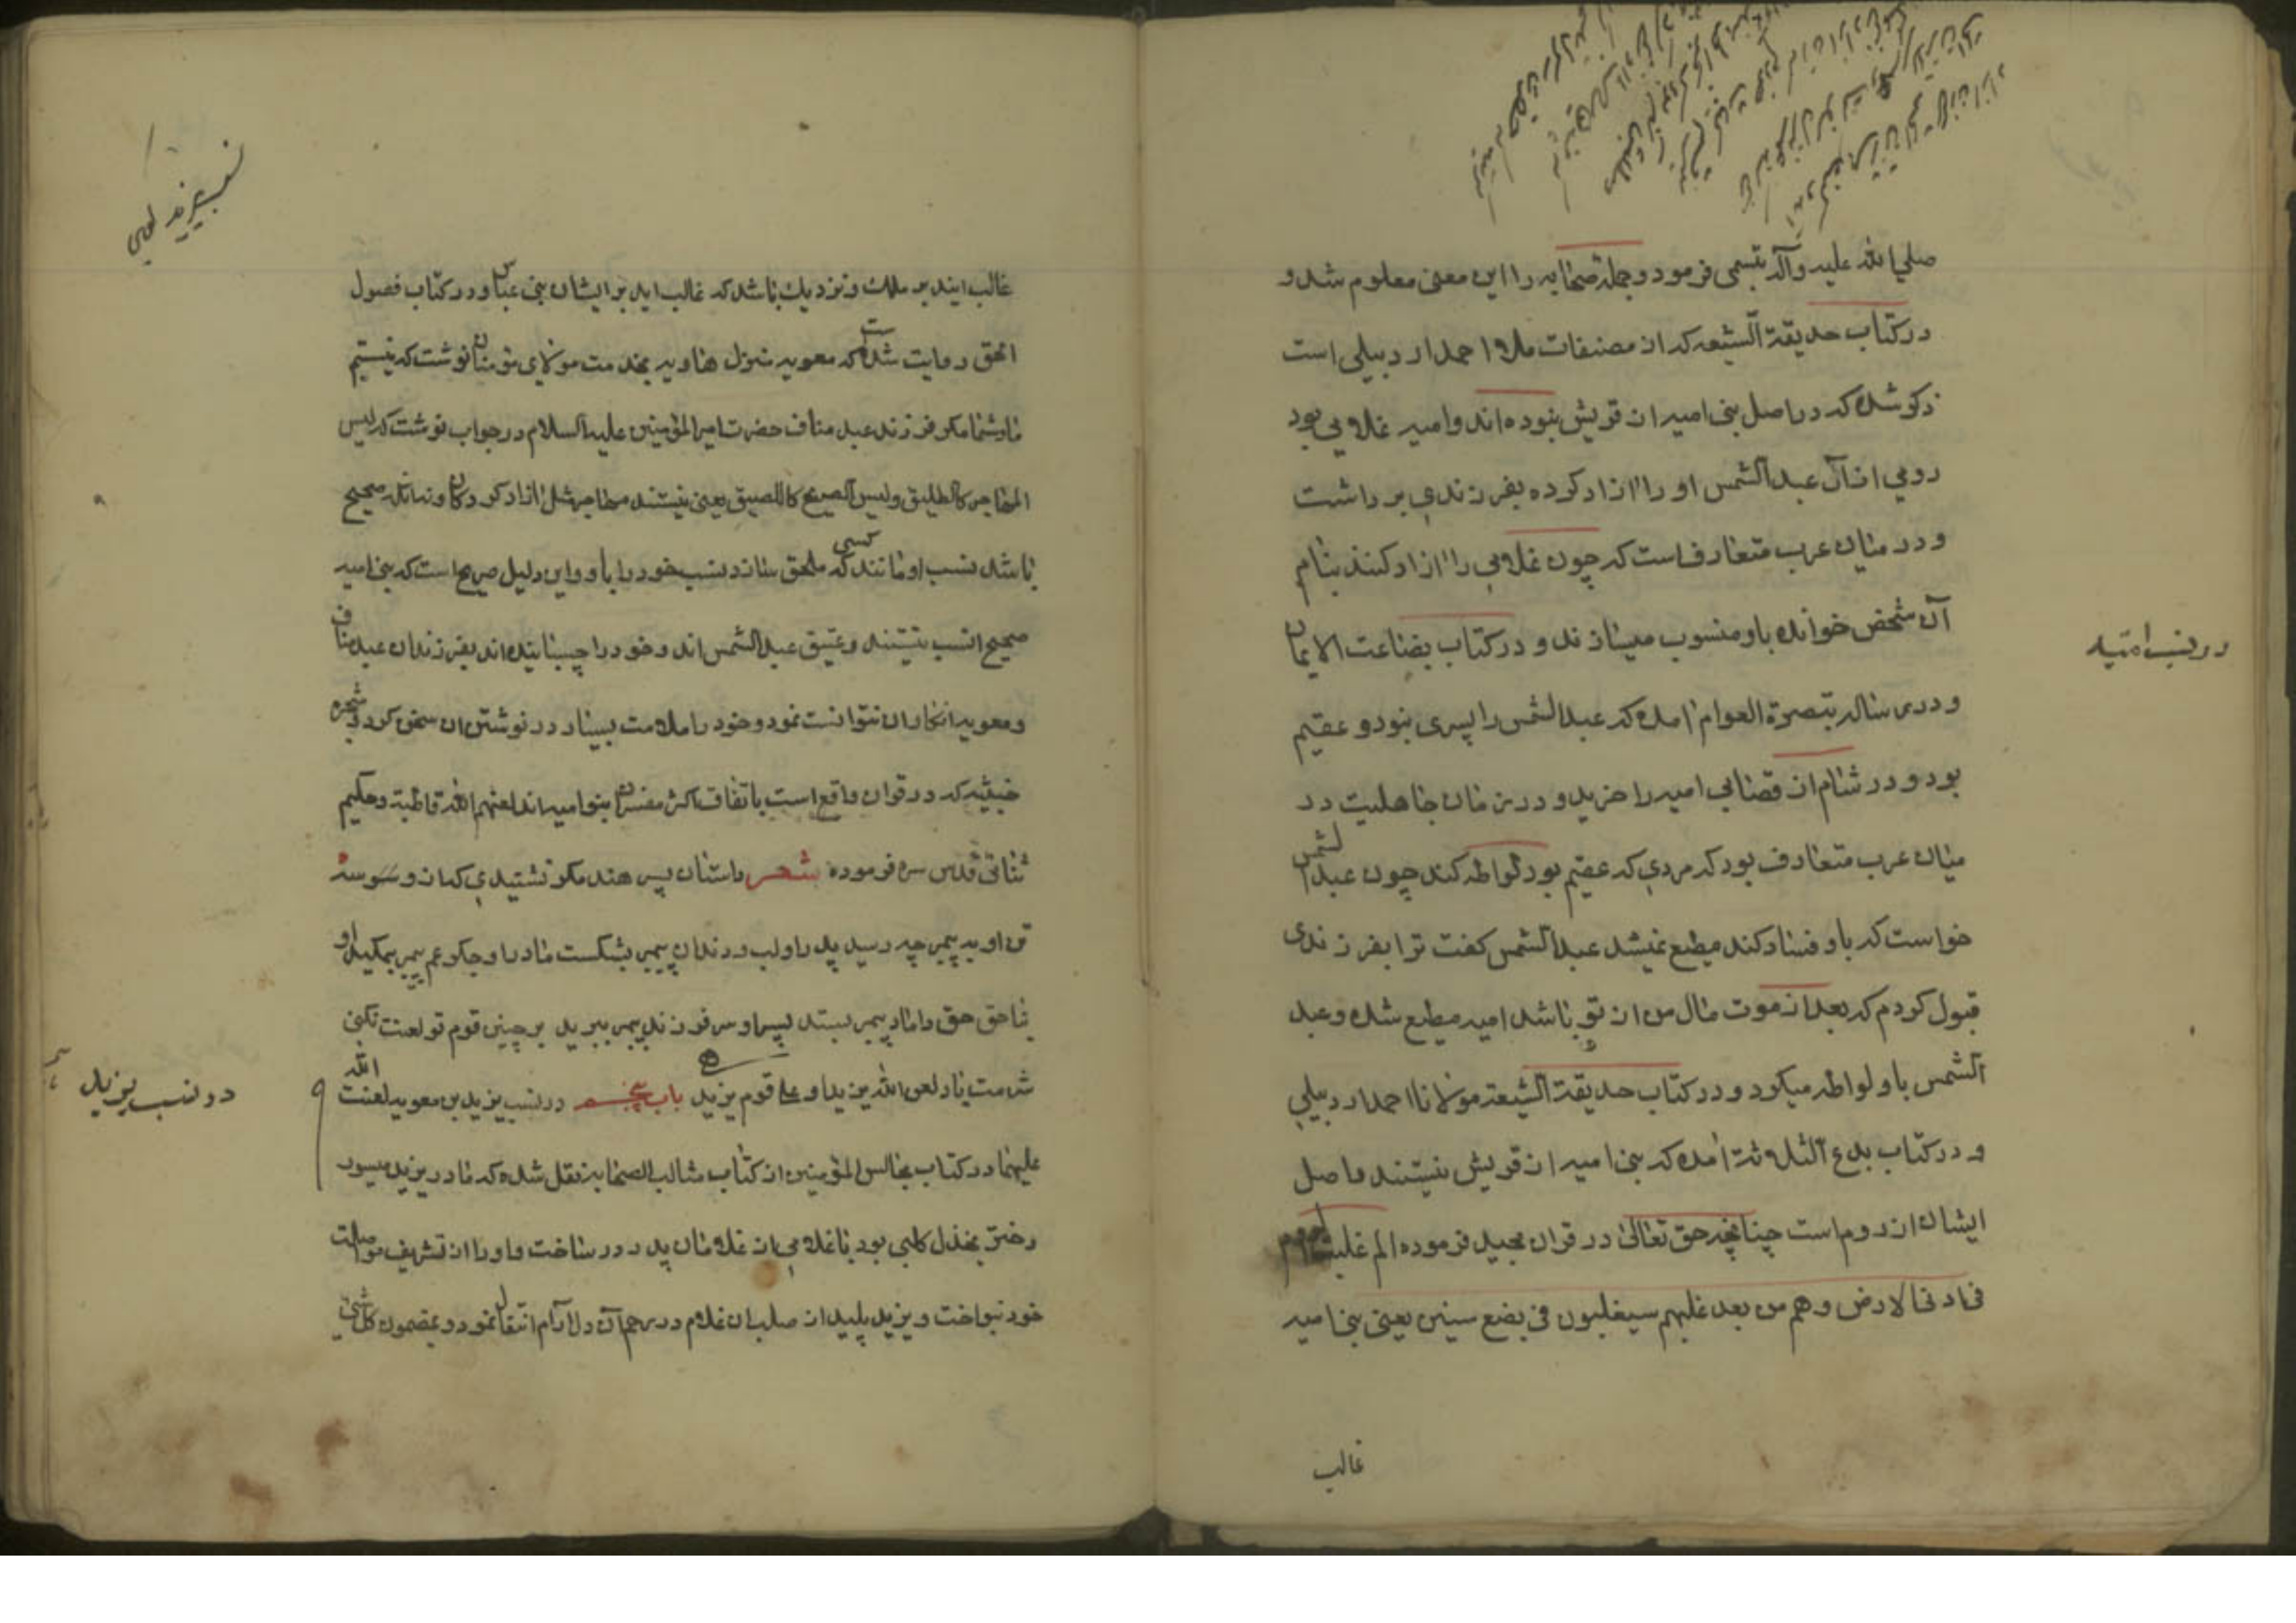 صلي الله عليه وآله تبسمي فرمود وجملة صحابه را اين معني معلوم شد و
در كتاب حديقة الشيعه كه از مصنفات ملا احمد اردبيلي است
ذكر شده كه در اصل بني اميه از قريش نبوده اند و اميه غلامي بود
رومي از آن عبد الشمس او را ازاد كرده بفرزندي برداشت
و در ميان عرب متعارف است كه چون غلامي را ازاد كنند بنام
آن شخص خوانده باو منسوب ميسازند و در كتاب بضاعت الايمان
و در رساله تبصرة العوام امده كه عبد الشمس را پسري نبود و عقيم
بود و در شام از قصابي اميه را خريد و در زمان جاهليت در
ميان عرب متعارف بود كه مردي كه عقيم بود لواطه كند چون عبد الشمس
خواست كه باو فساد كند مطيع نميشد عبد الشمس كفت ترا بفرزندي
قبول كردم كه بعد از موت مال من از تو باشد اميه مطيع شده و عبد
الشمس باو لواطه ميكرد و در كتاب حديقة الشيعة مولانا احمد اردبيلي
و در كتاب بدع الثلاثة امده كه بني اميه از قريش نيستند واصل
ايشان از روم است چنانچه حق تعالي در قران مجيد فرموده الم غلبت الروم
في ادني الارض وهم من بعد غلبهم سيغلبون في بضع سنين يعني بني اميه
غالب
در نسب اميه
غالب ايند بر ملك و نزديك باشد كه غالب ايد بر ايشان بني عباس و در كتاب فصول
الحق روايت شده است كه معويه بخدمت مولاي مومنان نوشت كه نيستيم
ما و شما مكر فرزند عبد مناف حضرت امير المؤمنين عليه السلام در جواب نوشت كه ليس
المهاجر كالطليق وليس الصريح كاللصيق يعني نيستند مهاجر مثل ازاد كردكان و نماند صحيح
باشد نسب او مانند كسي كه ملحق سازد نسب خود را باو و اين دليل صريح است كه بني اميه
صحيح النسب نيستند و عتيق عبد الشمس اند و خود را چسبانيده اند بفرزندان عبد مناف
و معويه انكار ان نتوانست نمود و خود را ملامت بسيار در نوشتن ان سخن كرد و شجره
خبيثه كه در قران واقع است باتفاق اكثر مفسران بنو اميه اند لعنهم الله قاطبة و حكيم
ثنائي قدس سره فرموده شعر داستان پسر هند مكر نشنيدي كه از و سه
تن او به پيمبر چه رسيد پدر او لب و دندان پيمبر بشكست مادر او جكر عم پيمبر بمكيد او
بناحق حق داماد پيمبر بستد پسر او سر فرزند پيمبر ببريد بر چنين قوم تو لعنت نكني
شرمت باد لعن الله يزيدا و علي قوم يزيد باب پنجم در نسب يزيد بن معويه لعنت الله
عليهما در كتاب مجالس المؤمنين از كتاب مثالب الصحابه نقل شده كه مادر يزيد ميسون
دختر بجدل كلبي بود با غلامي از غلامان پدر در ساخت و او را از تشريف مواصلت
خود نبواخت و يزيد پليد از صلب ان غلام در رحم آن دلارام انتقال نمود و بمضمون كل شئ
در نسب يزيد